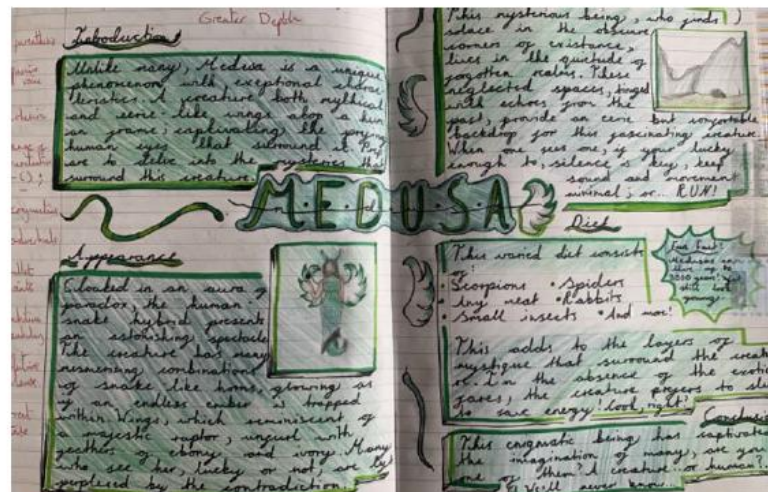 Greater Depth
Introduction
Unlike many, Medusa is a unique
phenomenon with exceptional charac-
teristics. A creature both mythical
and eerie-like wings atop a hum
an frame; captivating the prying
human eyes that surround it. Prep
are to delve into the mysteries that
surround this creature.
MEDUSA
Appearance
Cloaked in an aura of
paradox, the human
snake hybrid presents
an astonishing spectacle.
The creature has many
mesmerising combinations
of snake like horns, glowing as
if an endless ember is trapped
within. Wings, which reminiscent of
a majestic raptor, unfurl with
feathers of ebony and ivory. Many
who see her, lucky or not, are
perplexed by the contradiction
This mysterious being, who finds
solace in the obscure
corners of existance,
lives in the quietude of
forgotten realms. These
neglected spaces, tinged
with echoes from the
past, provide an eerie but comfortable
backdrop for this fascinating creature.
When one sees one, if your lucky
enough to, silence is key, keep
sound and movement
minimal; or... RUN!
Diet
This varied diet consists
of:
• Scorpions • Spiders
• Any meat • Rabbits
• Small insects • And more!
Fun Fact!
Medusas can
live up to
3000 years! and
still look
young.
This adds to the layers of
mystique that surround the creat
In the absence of the exotic
fares, the creature prefers to sle
to save energy! Cool, right?
Conclusion
This enigmatic being has captivated
the imagination of many, are you
one of them? A creature... or human?...
We'll never know...